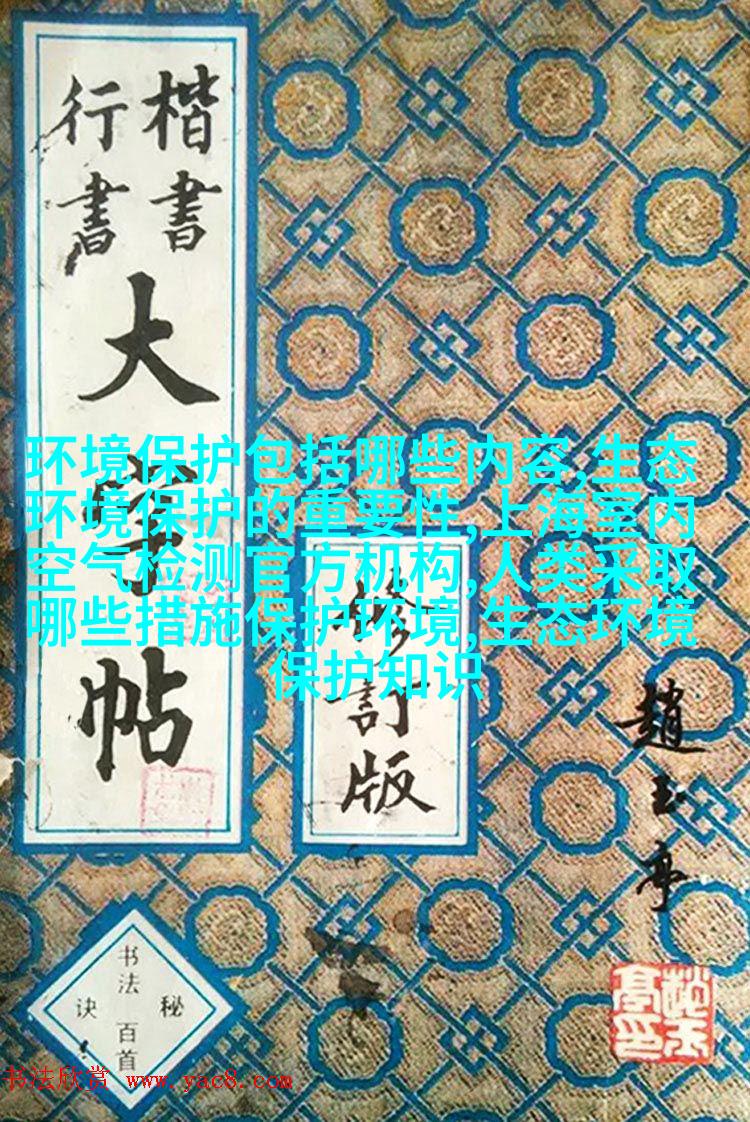 楷書
行書
大字帖
環境保护包括哪些内容,生态
环境保护的重要性,上海室内
空气检测官方机构,人类采取
哪些措施保护环境,生态环境
保护知识
修訂版
趙玉亭
书法百首
秘诀
书法欣赏 www.yac8.com